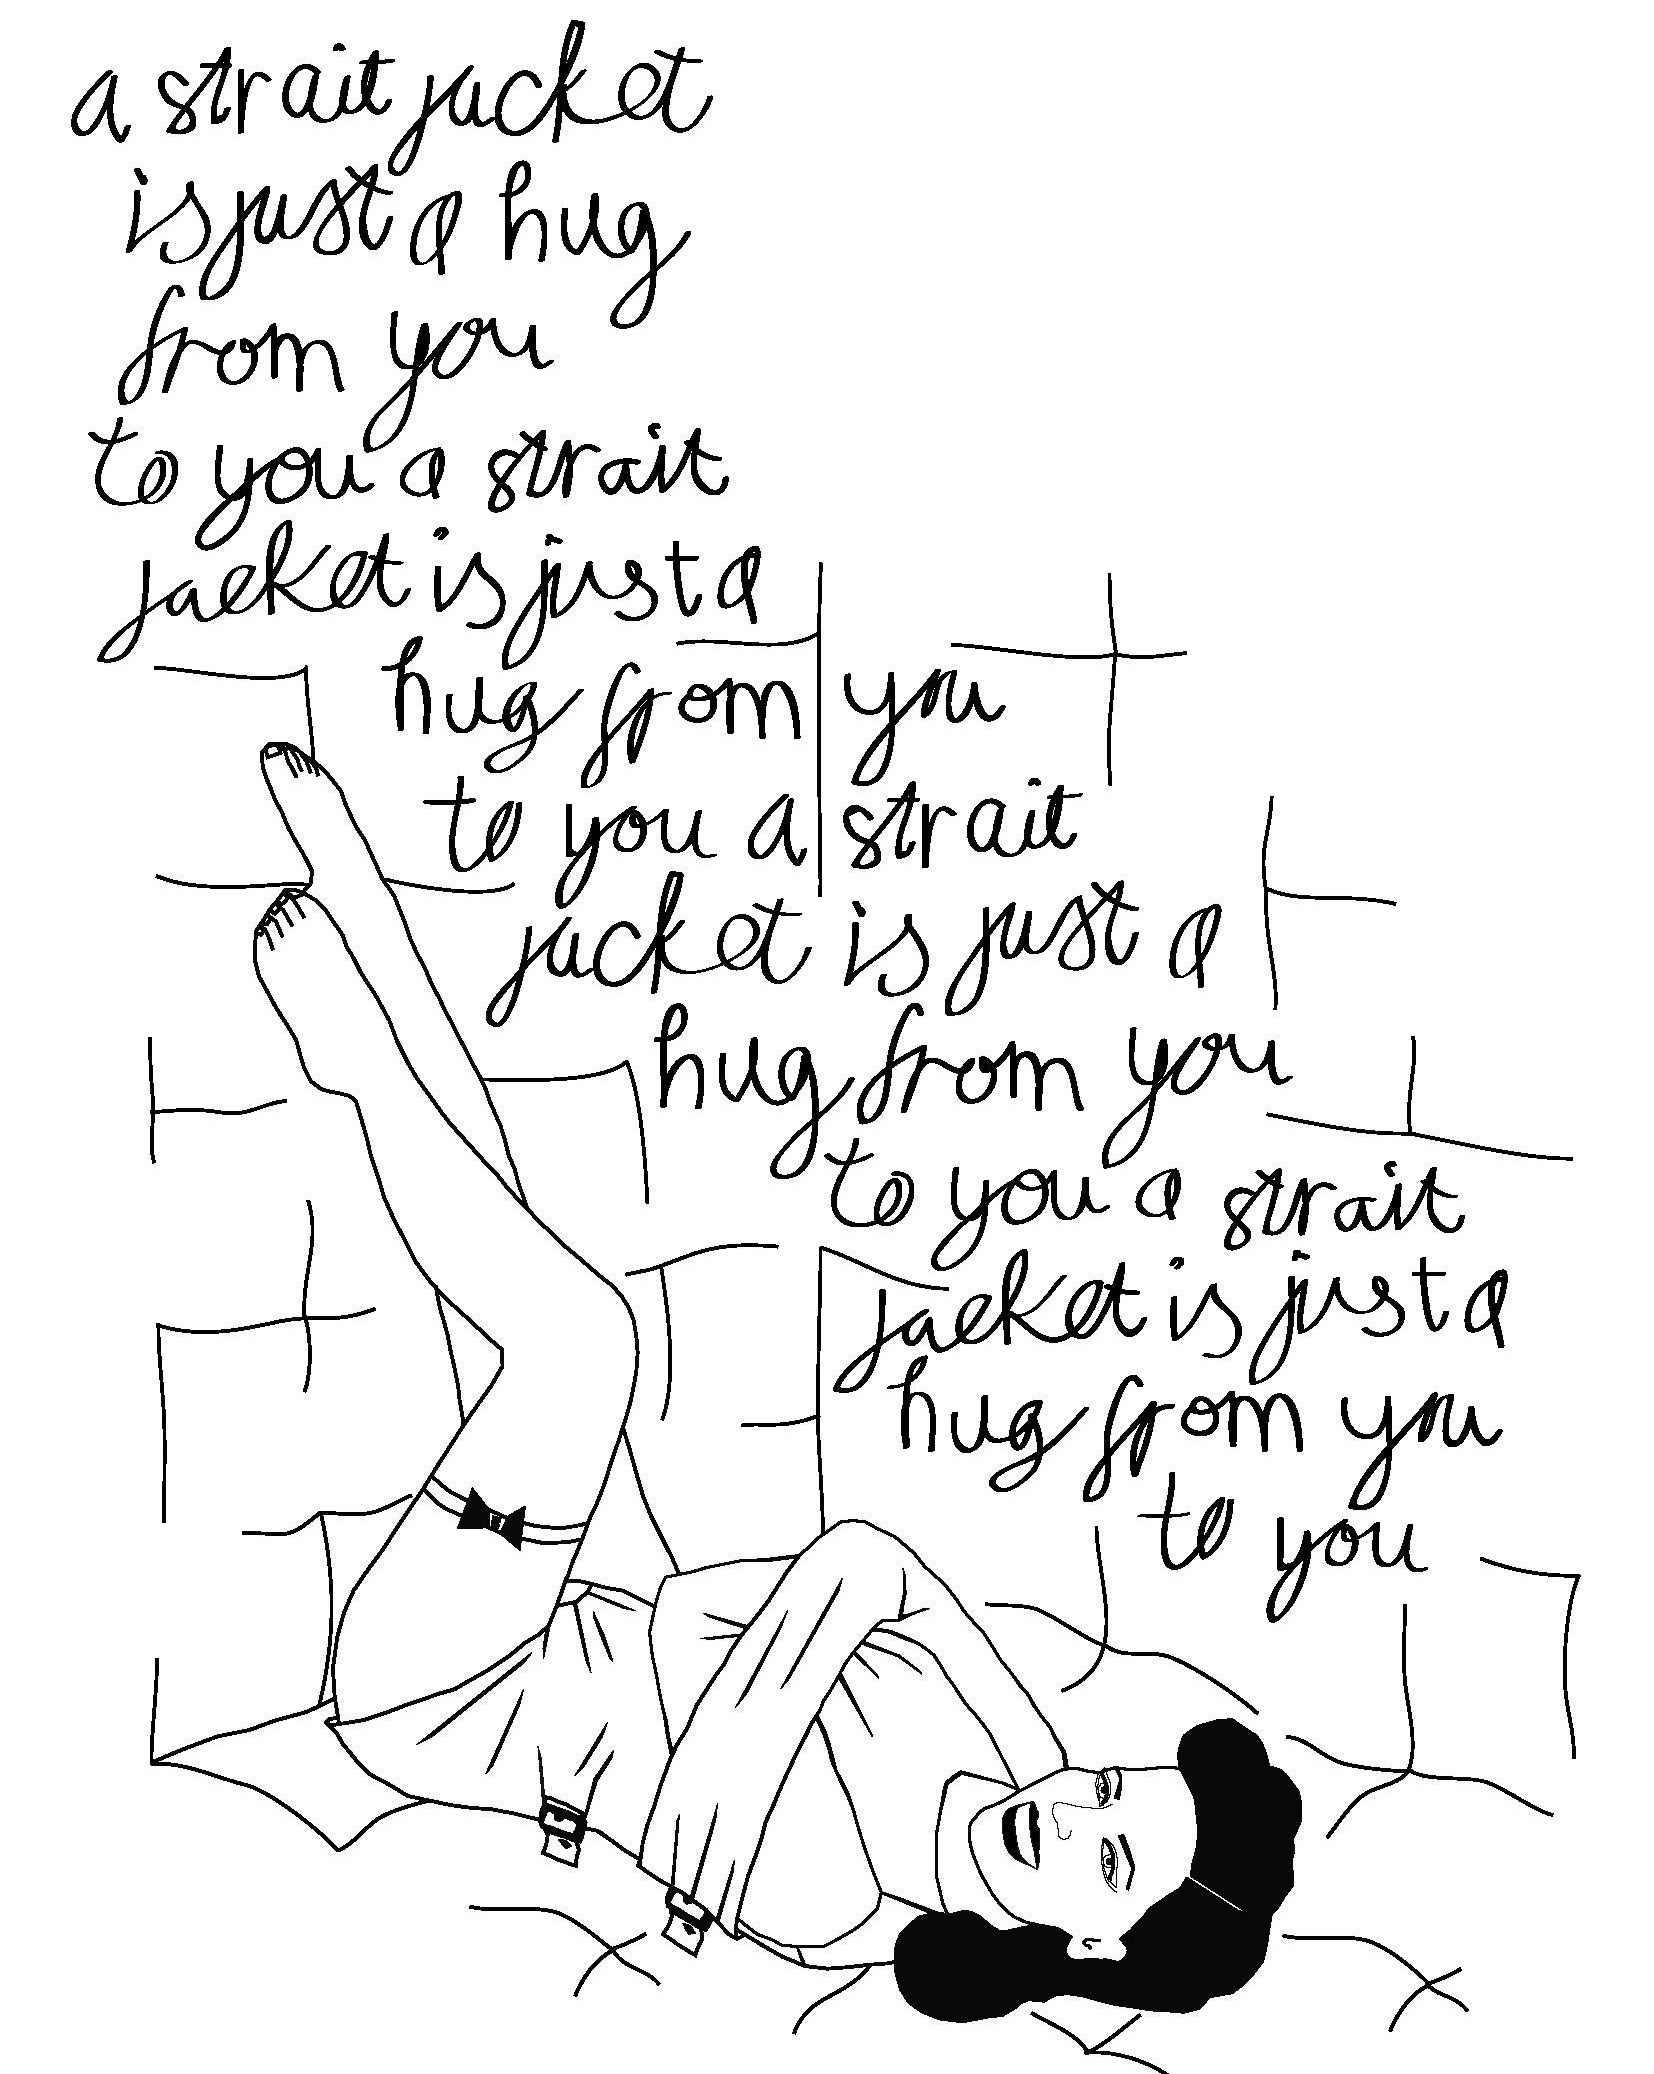 a strait jacket
is just a hug
from you
to you a strait
jacket is just a
hug from you
to you a strait
jacket is just a
hug from you
to you a strait
jacket is just a
hug from you
to you